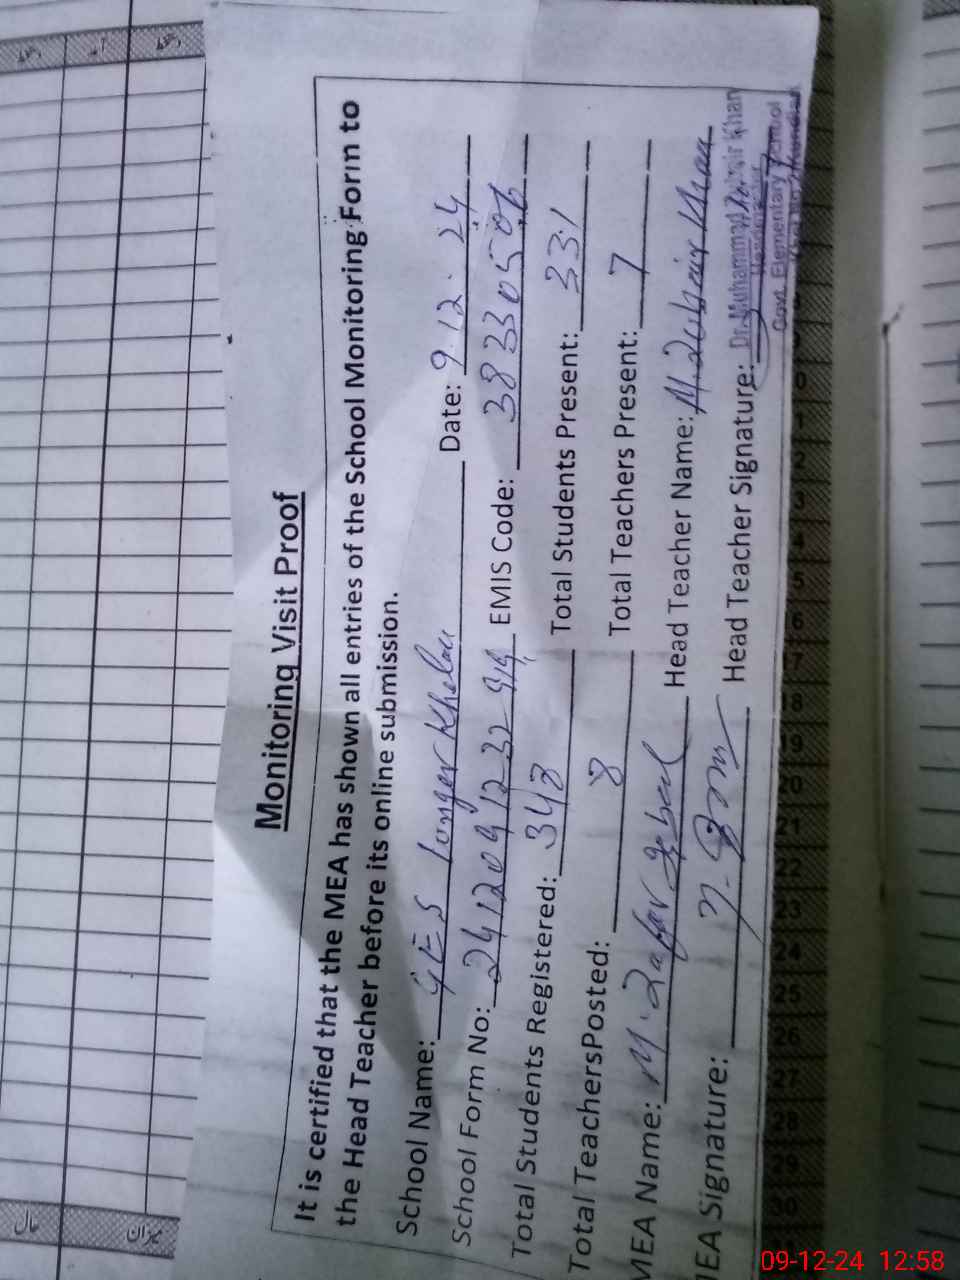 Monitoring Visit Proof
It is certified that the MEA has shown all entries of the School Monitoring Form to
the Head Teacher before its online submission.
School Name: GES Date: 9.12.24
School Form No: EMIS Code: 38330506
Total Students Registered: 343 Total Students Present: 331
Total TeachersPosted: 8 Total Teachers Present: 7
MEA Name: M. Zafar Iqbal Head Teacher Name: M. Zubair Khan
MEA Signature: Head Teacher Signature:
Dr. Muhammad Zubair Khan
Headmaster
Govt. Elementary School
09-12-24 12:58